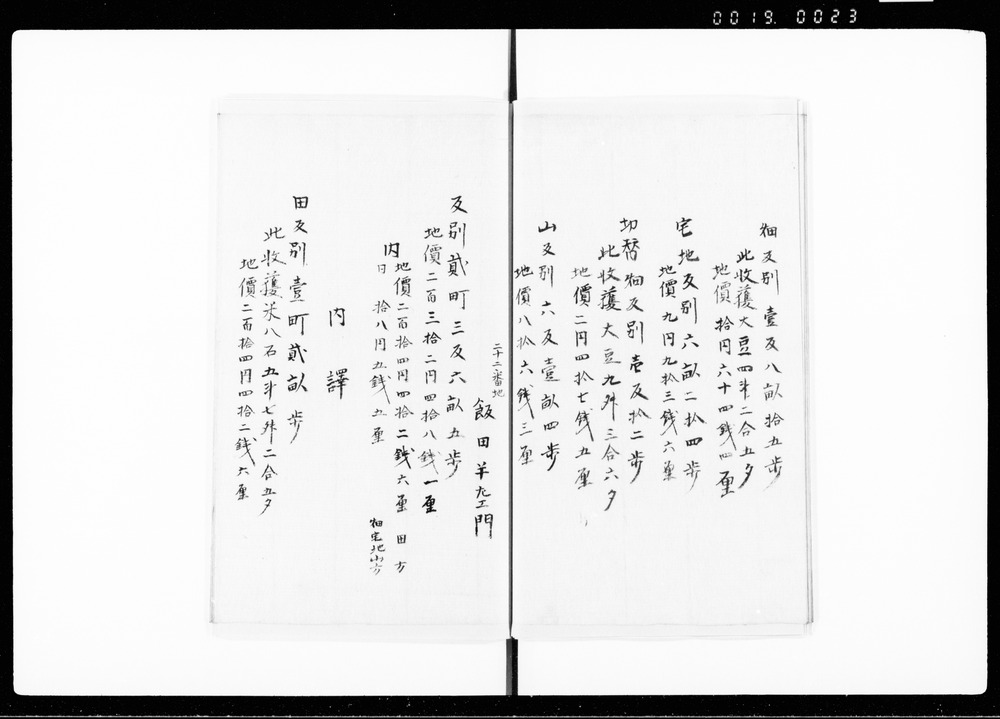 0019.0023
畑反別壹反八畝拾五歩
此收護大豆四斗二合五夕
地價拾円六十四銭四厘
宅地反別六畝二拾四歩
地價九円九拾三銭六厘
切替畑反別壱反拾二歩
此收護大豆九舛三合六夕
地價二円四拾七銭五厘
山反別六反壹畝四歩
地價八拾六銭三厘
二十二番地
飯田羊左エ門
反別貳町三反六畝五歩
地價二百三拾二円四拾八銭一厘
内地價二百拾四円四拾二銭六厘 田方
日 拾八円五銭五厘 畑宅地山方
内譯
田反別壹町貳畝歩
此收護米八石五斗七舛二合五夕
地價二百拾四円四拾二銭六厘